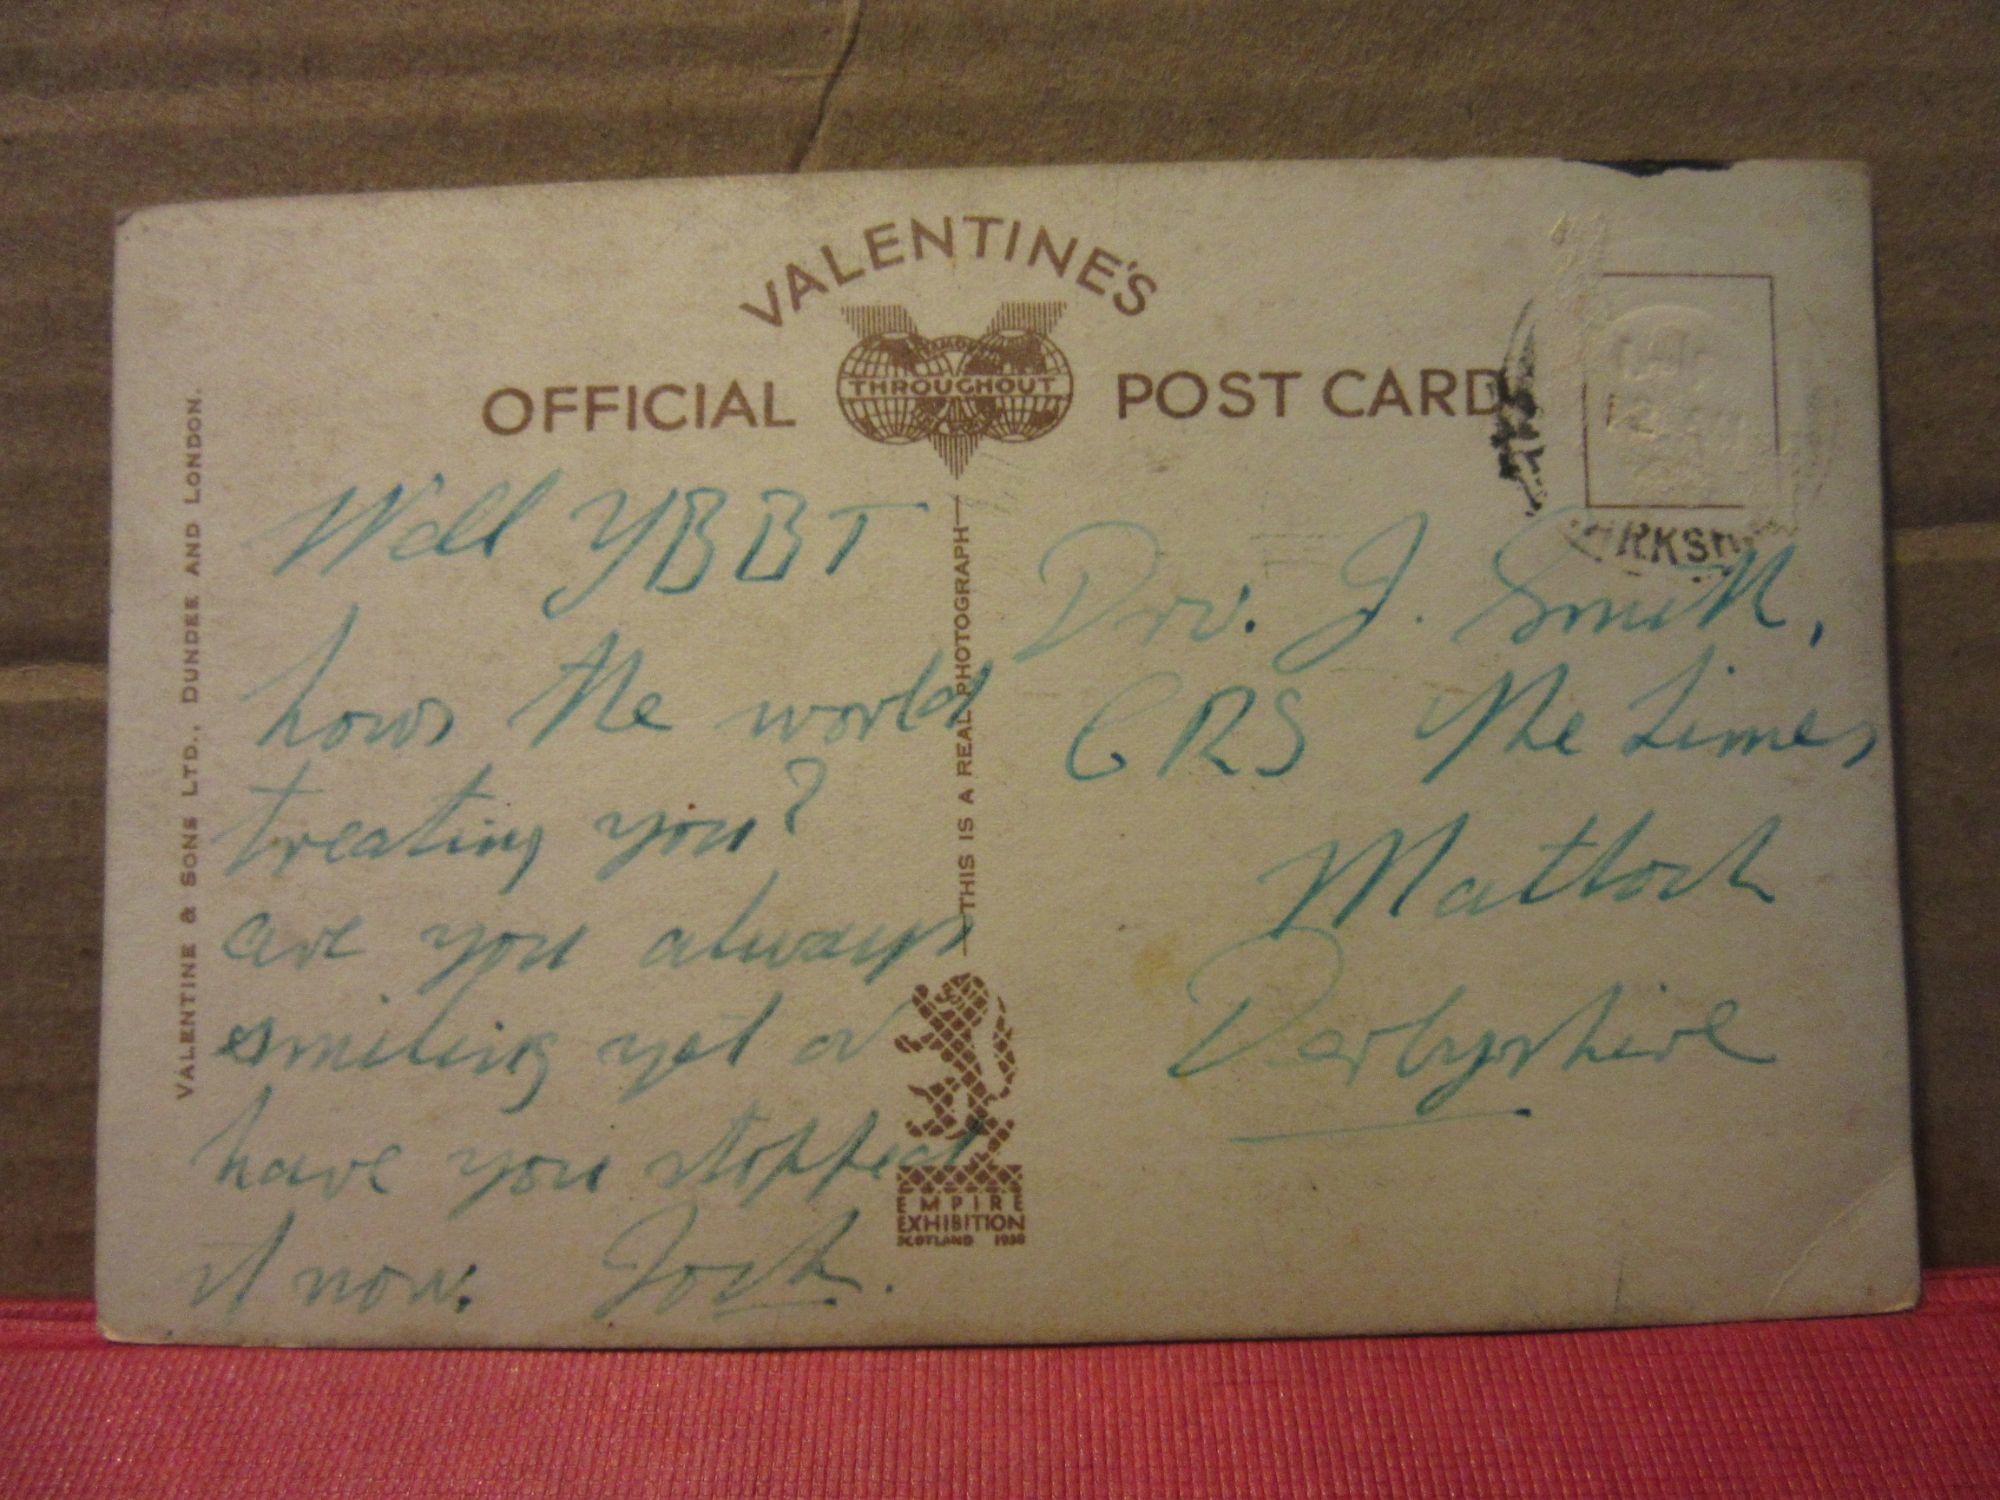 VALENTINE'S
OFFICIAL
FAMOUS
THROUGHOUT
POST CARD
VALENTINE & SONS LTD., DUNDEE AND LONDON.
THIS IS A REAL PHOTOGRAPH
Well YBBT
hows the world
treating you?
are you always
smiling yet or
have you stopped
it now. Jock.
Drv. J. Smith,
CRS The Limes
Matlock
Derbyshire
EMPIRE
EXHIBITION
SCOTLAND 1938